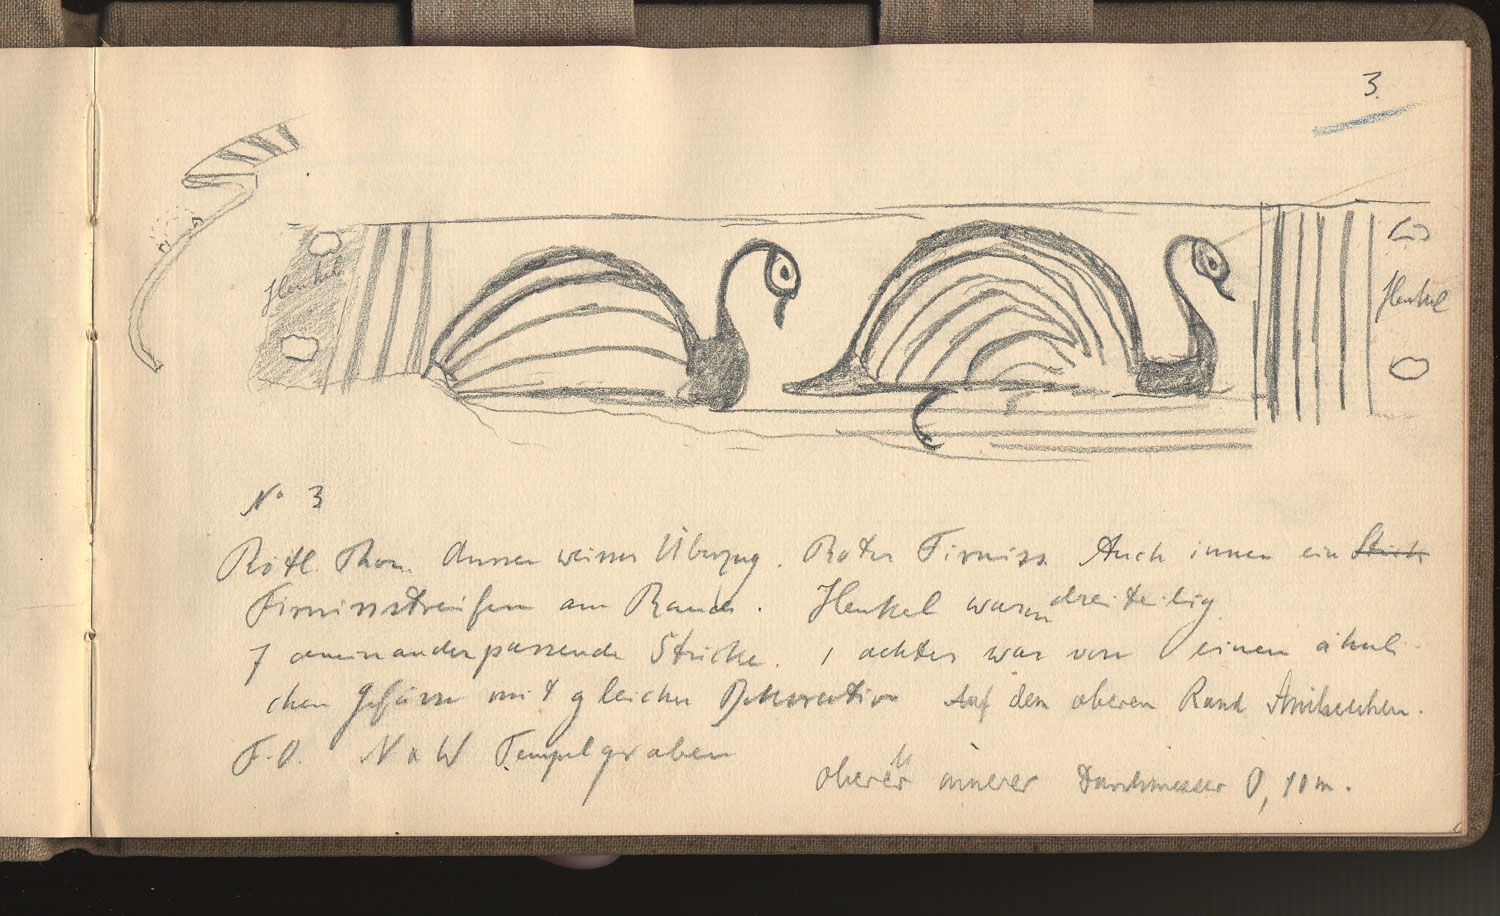 3.
Henkel
Henkel
No 3
Rötl. Thon. Aussen weisser Überzug. Roter Firniss. Auch innen ein Strich
Firnissstreifen am Rande. Henkel waren dreiteilig
7 aneinanderpassende Stücke. 1 achtes war von einem ähnli-
chen Gefässe mit gleicher Dekoration Auf dem oberen Rand Strichelchen.
F.O. N a W Tempelgraben
oberer innerer Durchmesser 0,10 m.